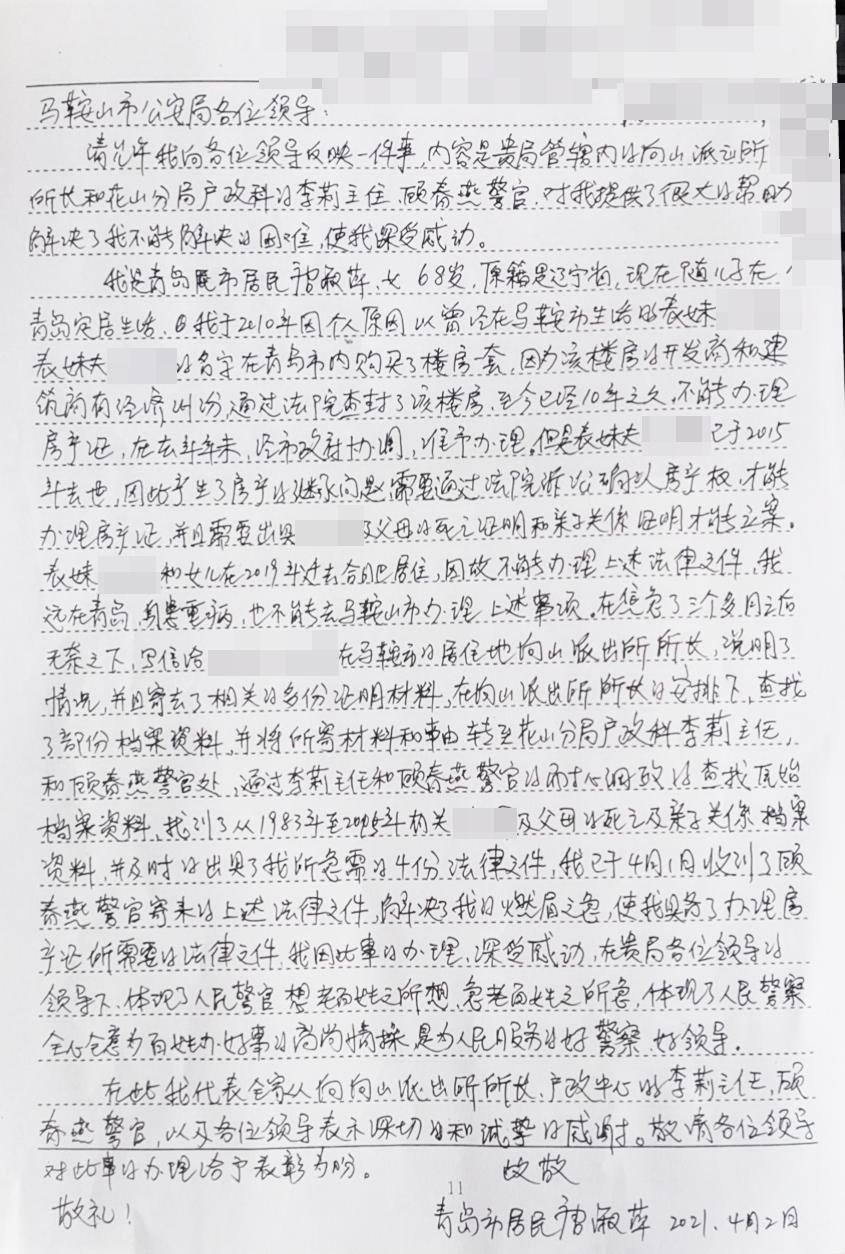 马鞍山市公安局各位领导：
请允许我向各位领导反映一件事，内容是贵局管辖内的向山派出所
所长和花山分局户政科的李莉主任、顾春燕警官，对我提供了很大的帮助
解决了我不能解决的困难，使我深受感动。
我是青岛市居民 女 68岁，原籍是辽宁省，现在随儿子在
青岛定居生活，我于2010年因个人原因以曾经在马鞍市生活的表妹
表妹夫 的名字在青岛市内购买了楼房一套，因为该楼房的开发商和建
筑商有经济纠份，通过法院查封了该楼房，至今已经10年之久，不能办理
房产证，在去年年末，经市政府协调，准予办理。但是表妹夫 已于2015
年去世，因此产生了房产的继承问题需要通过法院诉讼确认房产权，才能
办理房产证，并且需要出具 及父母的死亡证明和亲子关係证明才能立案。
表妹 和女儿在2019年迁去合肥居住，因故不能办理上述法律文件，我
远在青岛，身患重病，也不能去马鞍山市办理上述事项。在焦急了三个多月之后
无奈之下，写信给 在马鞍市的居住地向山派出所所长，说明了
情况，并且寄去了相关的多份证明材料，在向山派出所所长的安排下，查找
了部份档案资料，并将所寄材料和事由转至花山分局户政科李莉主任，
和顾春燕警官处，通过李莉主任和顾春燕警官的耐心细致的查找原始
档案资料，找到了从1983年至2005年有关 及父母的死亡及亲子关係档案
资料，并及时的出具了我所急需的4份法律文件，我已于4月1日收到了顾
春燕警官寄来的上述法律文件，解决了我的燃眉之急，使我具备了办理房
产证所需要的法律文件，我因此事的办理，深受感动，在贵局各位领导的
领导下，体现了人民警官想老百姓之所想，急老百姓之所急，体现了人民警察
全心全意为百姓办好事的高尚情操，是为人民服务的好警察，好领导。
在此我代表全家人向向山派出所所长，户政中心的李莉主任，顾
春燕警官，以及各位领导表示深切的和诚挚的感谢。敬请各位领导
对此事的办理给予表彰为盼。 致敬
敬礼！ 11
青岛市居民唐淑萍 2021.4月2日